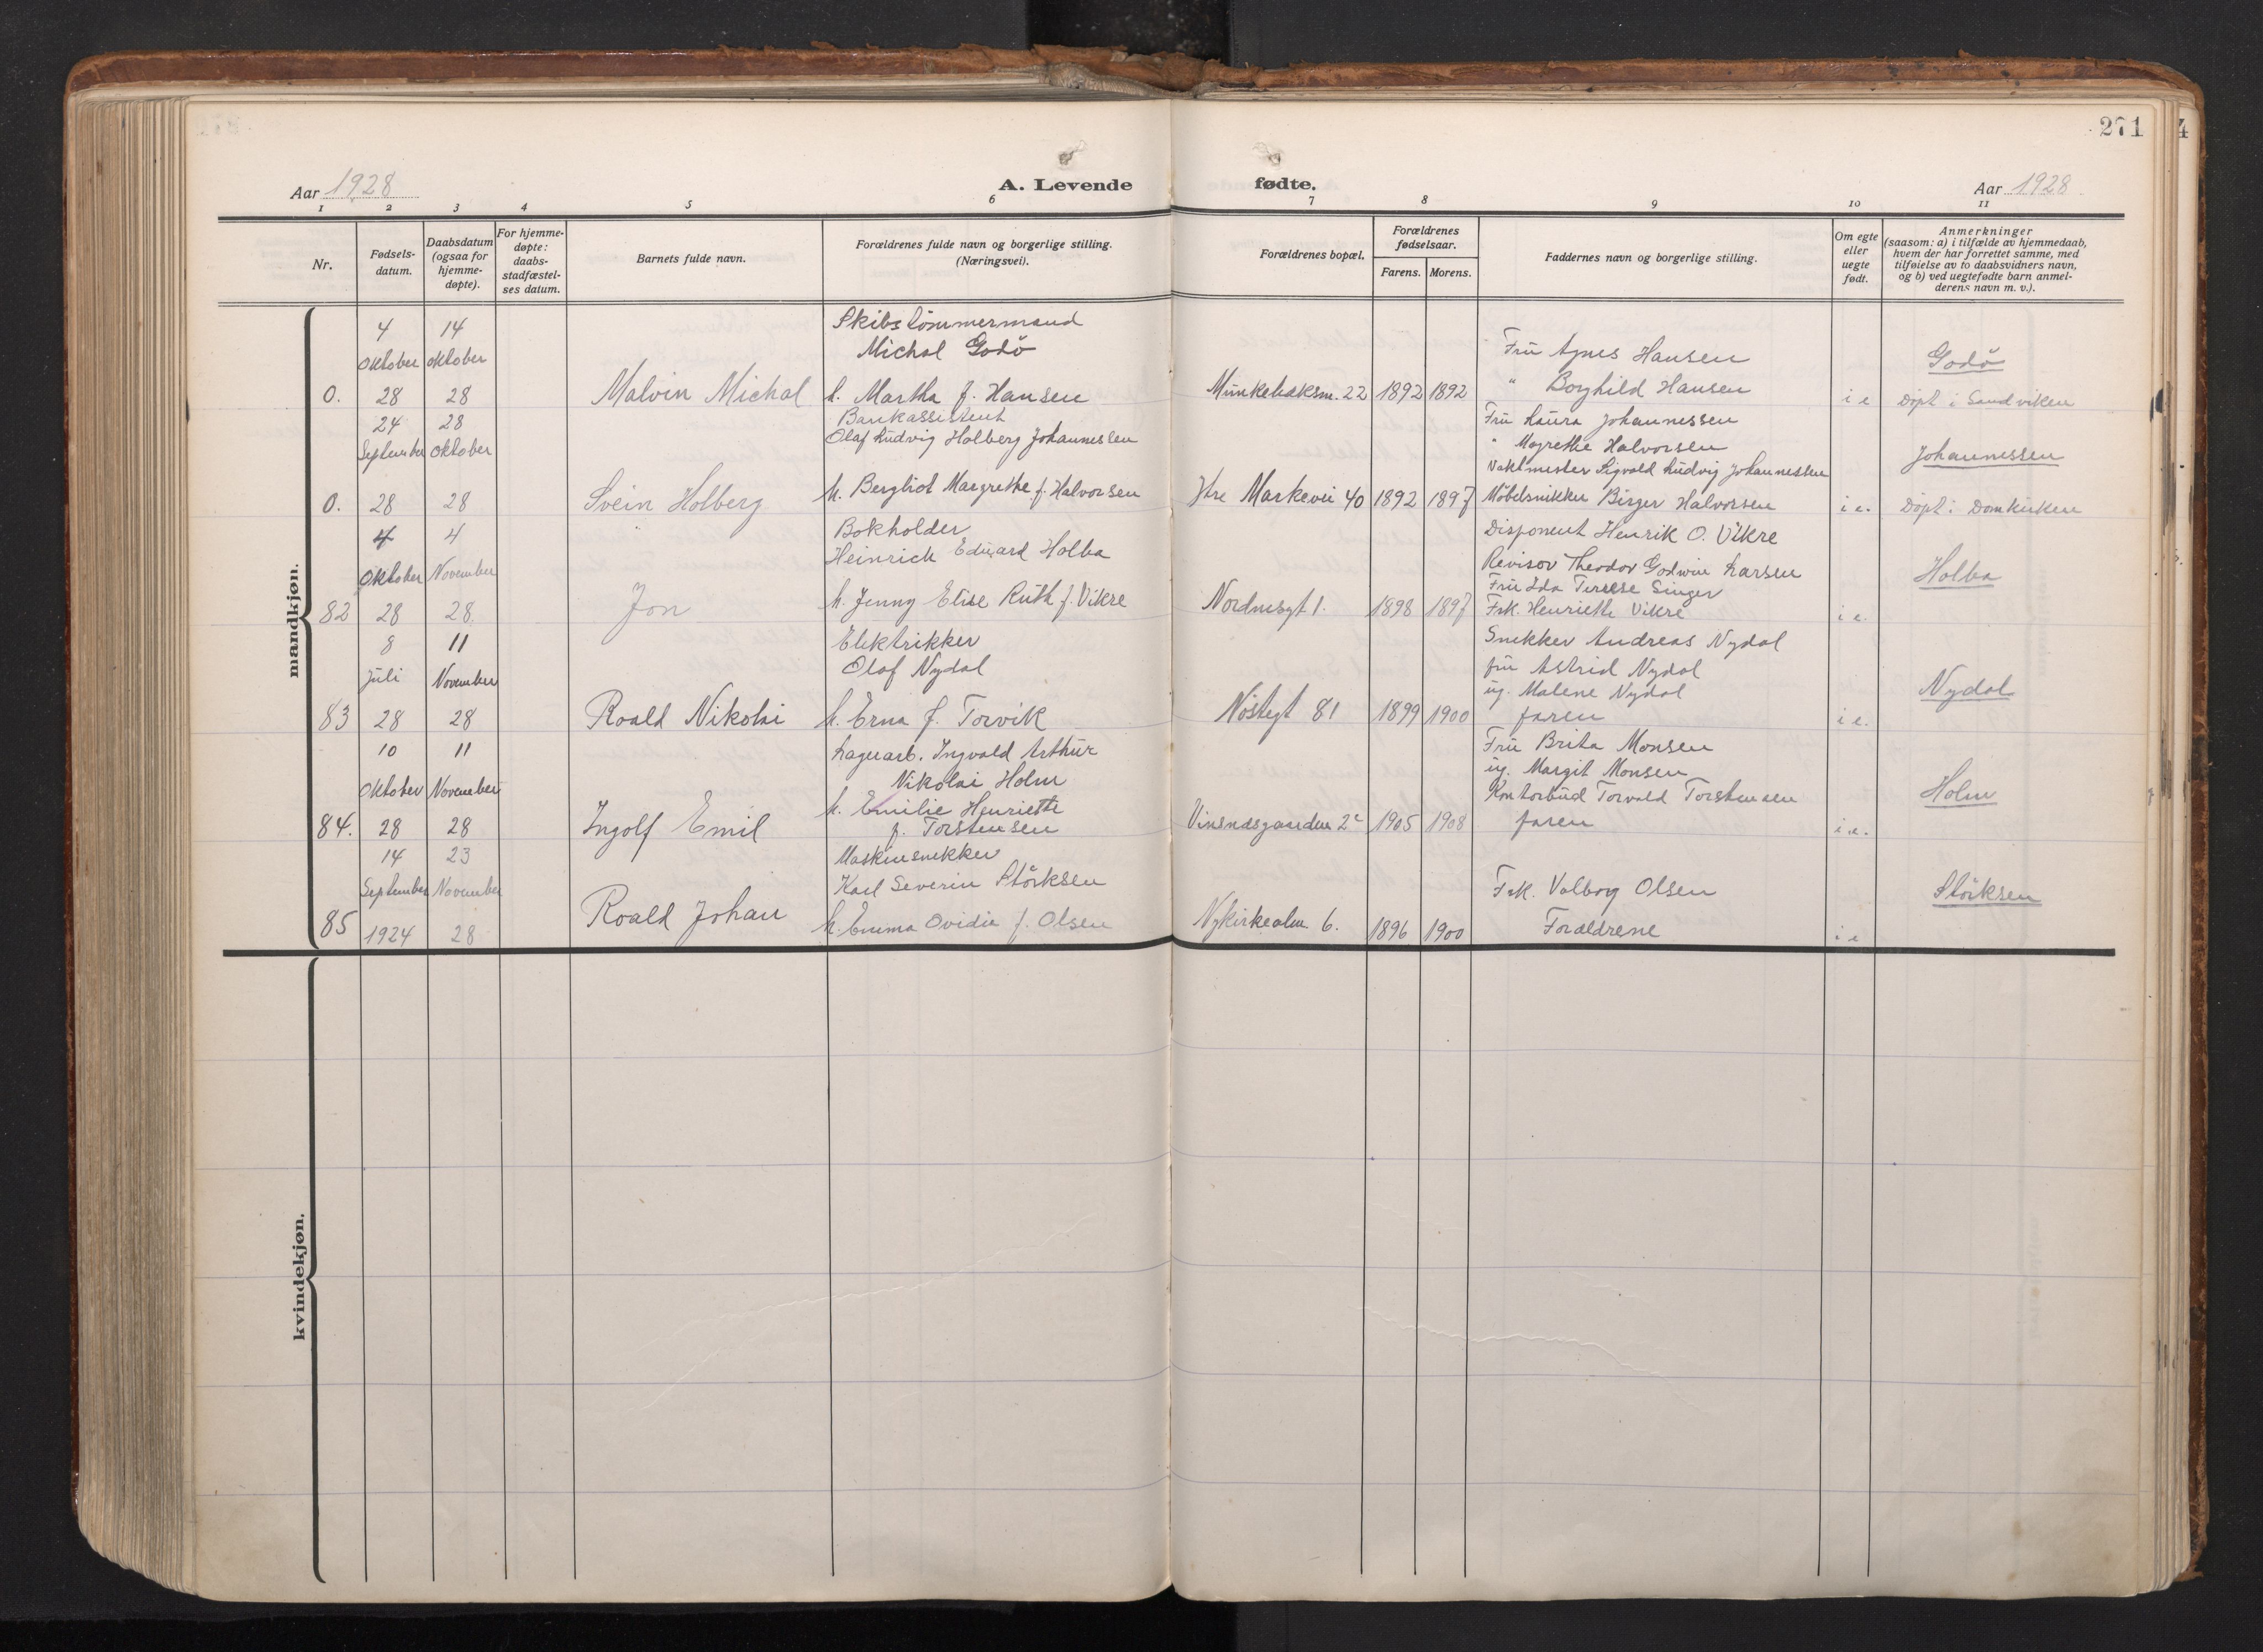 271
4
Aar 1928
A. Levende
fødte.
Aar 1928
1 2 3 4 5 6 7 8 9 10 11
Nr.
Fødsels-
datum.
Daabsdatum
(ogsaa for
hjemme-
døpte).
For hjemme-
døpte:
daabs-
stadfæstel-
ses datum.
Barnets fulde navn.
Forældrenes fulde navn og borgerlige stilling.
(Næringsvei).
Forældrenes bopæl.
Forældrenes
fødselsaar.
Farens. Morens.
Faddernes navn og borgerlige stilling.
Om egte
eller
uegte
født.
Anmerkninger
(saasom: a) i tilfælde av hjemmedaab,
hvem der har forrettet samme, med
tilføielse av to daabsvidners navn,
og b) ved uegtefødte barn anmel-
derens navn m. v.).
mandkjøn.
0.
4
Oktober
28
14
Oktober
28
Malvin Michal
Skibstömmermand
Michal Godö
h. Martha f. Hansen
Munkebæksm. 22
1892 1892
Frü Agnes Hansen
" Borghild Hansen
i e
Godö
Döpt i Sandviken
0.
24
September
28
28
Oktober
28
Svein Holberg
Bankassistent
Olaf Lüdvig Holberg Johannessen
h. Bergliot Margrethe f. Halvorsen
Ytre Markevei 40
1892 1897
Frü Laüra Johannessen
" Magrethe Halvorsen
Vaktmester Sigvald Lüdvig Johannessen
Möbelsnikker Birger Halvorsen
i e.
Johannessen
Döpt i Domkirken
82
4
Oktober
28
4
November
28.
Jon
Bokholder
Heinrich Edüard Holba
h. Jenny Elise Rüth f. Vikre
Nordnesgt 1.
1898 1897
Disponent Henrik O. Vikre
Revisor Theodor Godwin Larsen
Frü Ida Terese Singer
Frk. Henriette Vikre
i e.
Holba
83
8
Jüli
28
11
November
28
Roald Nikolai
Elektrikker
Olaf Nydal
h. Erna f. Torvik
Nöstegt 81
1899 1900
Snekker Andreas Nydal
frü Astrid Nydal
üg. Malene Nydal
faren
i e.
Nydal
84.
10
Oktober
28
11
November
28
Ingolf Emil
Lagerarb. Ingvald Arthür
Nikolai Holm
h. Emilie Henriette
f. Torstensen
Vinsnæsgaarden 2c
1905 1908
Frü Brita Monsen
üg. Margit Monsen
Kontorbüd Torvald Torstensen
faren
i e.
Holm
85
14
September
1924
23
November
28
Roald Johan
Maskinsnekker
Karl Severin Störksen
h. Emma Ovidie f. Olsen
Nykirkealm. 6.
1896 1900
Frk. Valborg Olsen
Forældrene
i e
Störksen
kvindekjøn.